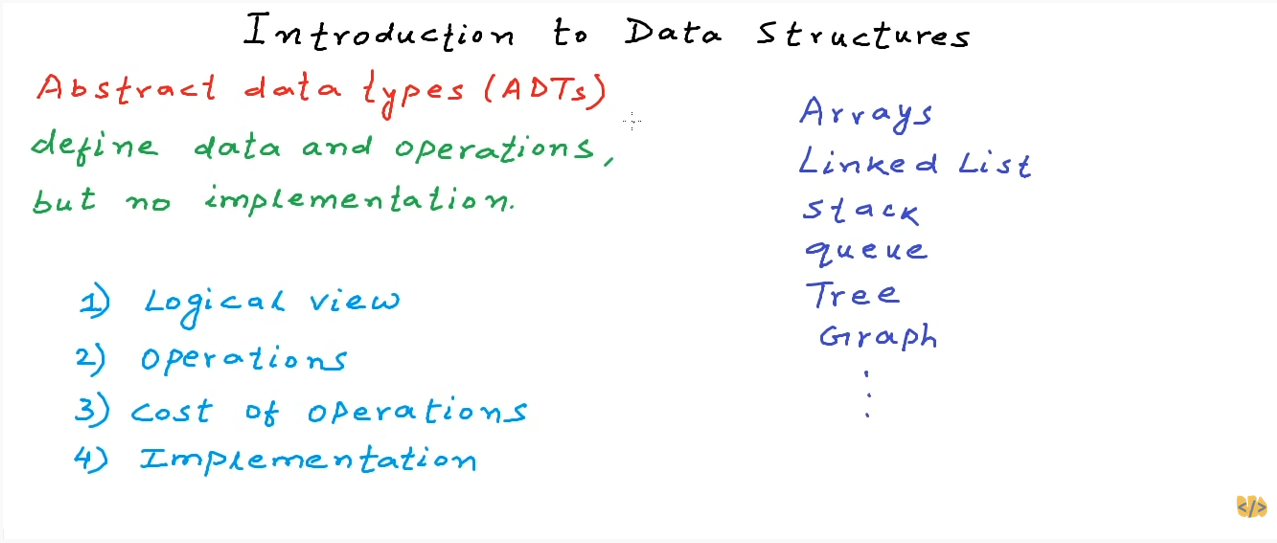 Introduction to Data Structures
Abstract data types (ADTs)
define data and operations,
but no implementation.
1) Logical view
2) operations
3) cost of operations
4) Implementation
Arrays
Linked List
Stack
queue
Tree
Graph